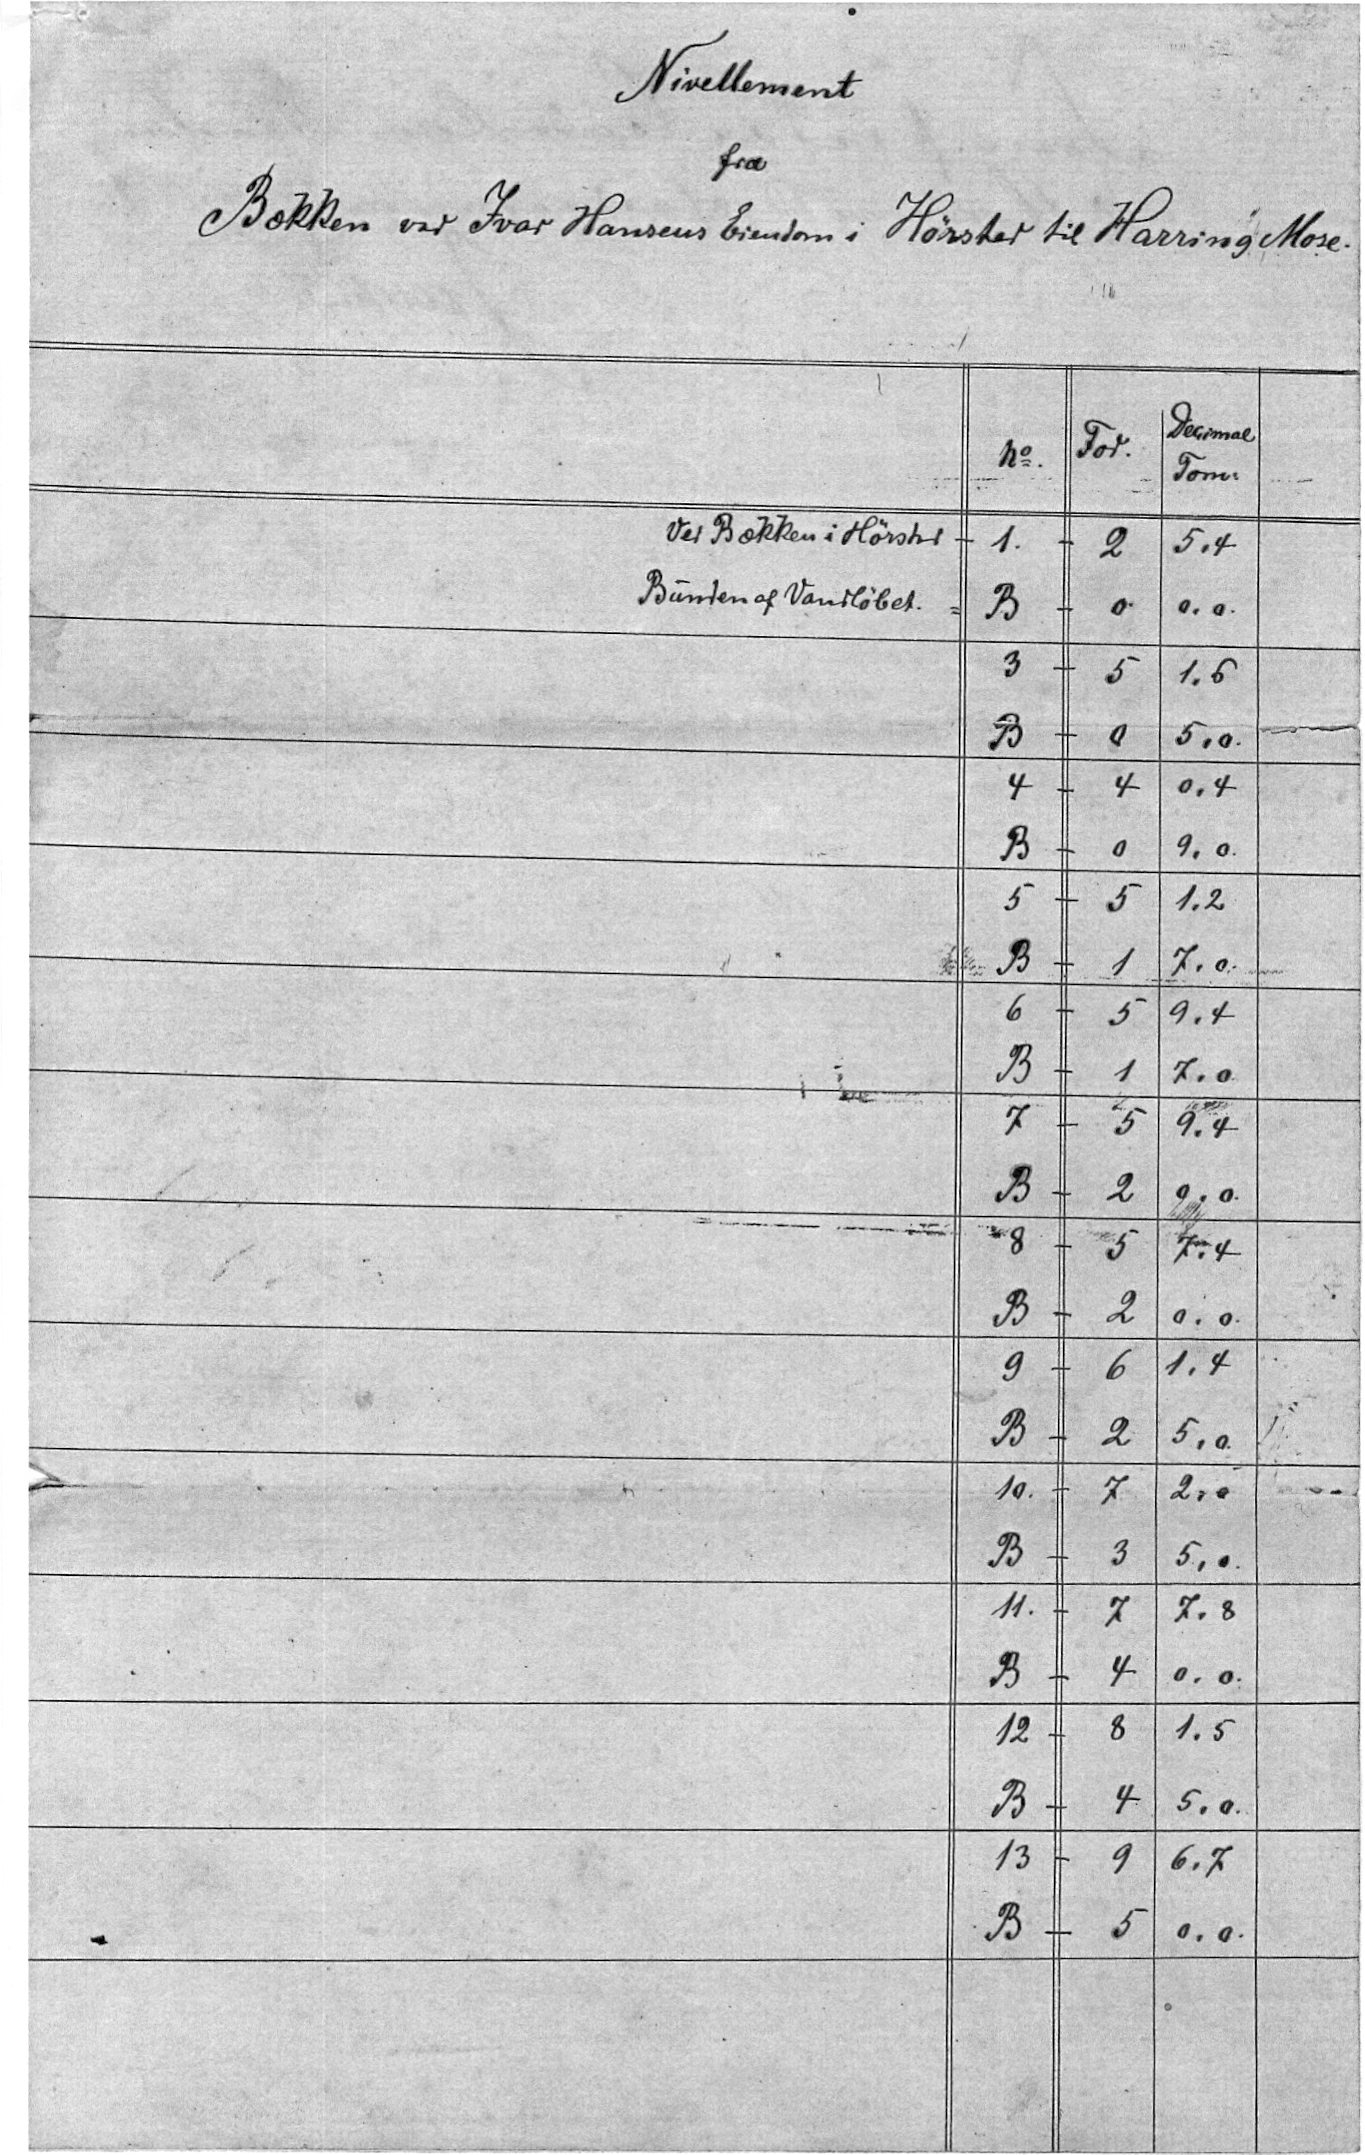 Nivellement
fra
Bækken ved Ivar Hansens Eiendom i Hörsted til Harring Mose.
No. Fod. Decimal Tom:
Ved Bækken i Hörsted 1. 2 5.4
Bunden af Vandlöbet. = B 0 0.0.
3 5 1.6
B 0 5.0.
4 4 0.4
B 0 9.0.
5 5 1.2
B 1 7.0.
6 5 9.4
B 1 7.0
7 5 9.4
B 2 0.0.
8 5 7.4
B 2 0.0.
9 6 1.4
B 2 5.0.
10. 7 2.0
B 3 5.0.
11. 7 7.8
B 4 0.0.
12 8 1.5
B 4 5.0.
13 9 6.7
B 5 0.0.